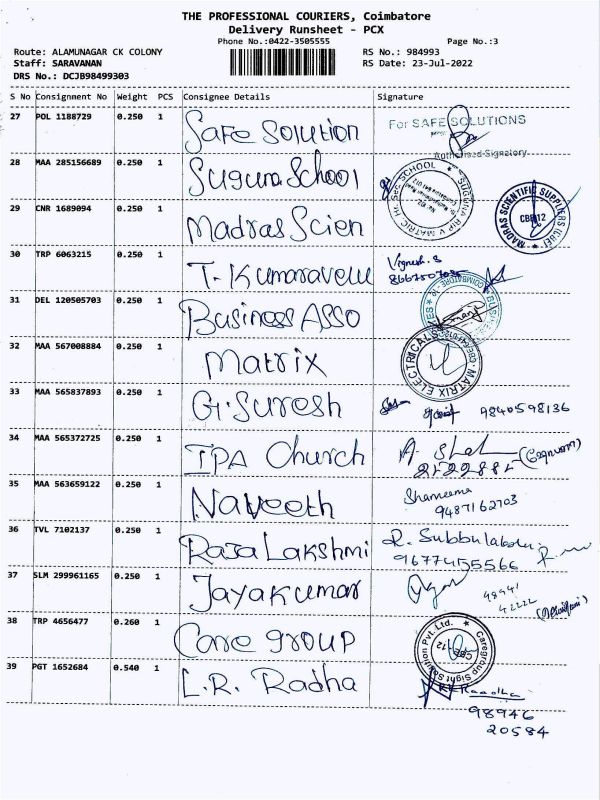 THE PROFESSIONAL COURIERS, Coimbatore
Delivery Runsheet - PCX
Phone No.:0422-3505555 Page No.:3
Route: ALAMUNAGAR CK COLONY RS No.: 984993
Staff: SARAVANAN RS Date: 23-Jul-2022
DRS No.: DCJB98499303
S No Consignment No Weight PCS Consignee Details Signature
27 POL 1188729 0.250 1 Safe Solution For SAFE SOLUTIONS
Authorised Signatory
28 MAA 285156689 0.250 1 Suguna School SUGUNA RIP V MATRIC Hr. Sec. SCHOOL
29 CNR 1689094 0.250 1 Madras Scien MADRAS SCIENTIFIC SUPPLIERS (CBE)
CBE-12
30 TRP 6063215 0.250 1 T. Kumaravelu Vignesh. S
31 DEL 120505703 0.250 1 Business Asso
32 MAA 567008884 0.250 1 Matrix MATRIX ELECTRICALS
33 MAA 565837893 0.250 1 G. Suresh 9840598136
34 MAA 565372725 0.250 1 IPA Church
35 MAA 563659122 0.250 1 Naveeth Shameema
9487162703
36 TVL 7102137 0.250 1 Raja Lakshmi R. Subbulakshmi
37 SLM 299961165 0.250 1 Jayakumar 48941
42222
38 TRP 4656477 0.260 1 Care group Caregroup Sight Solution Pvt. Ltd.
CBE 12
39 PGT 1652684 0.540 1 L.R. Radha
98946
20584